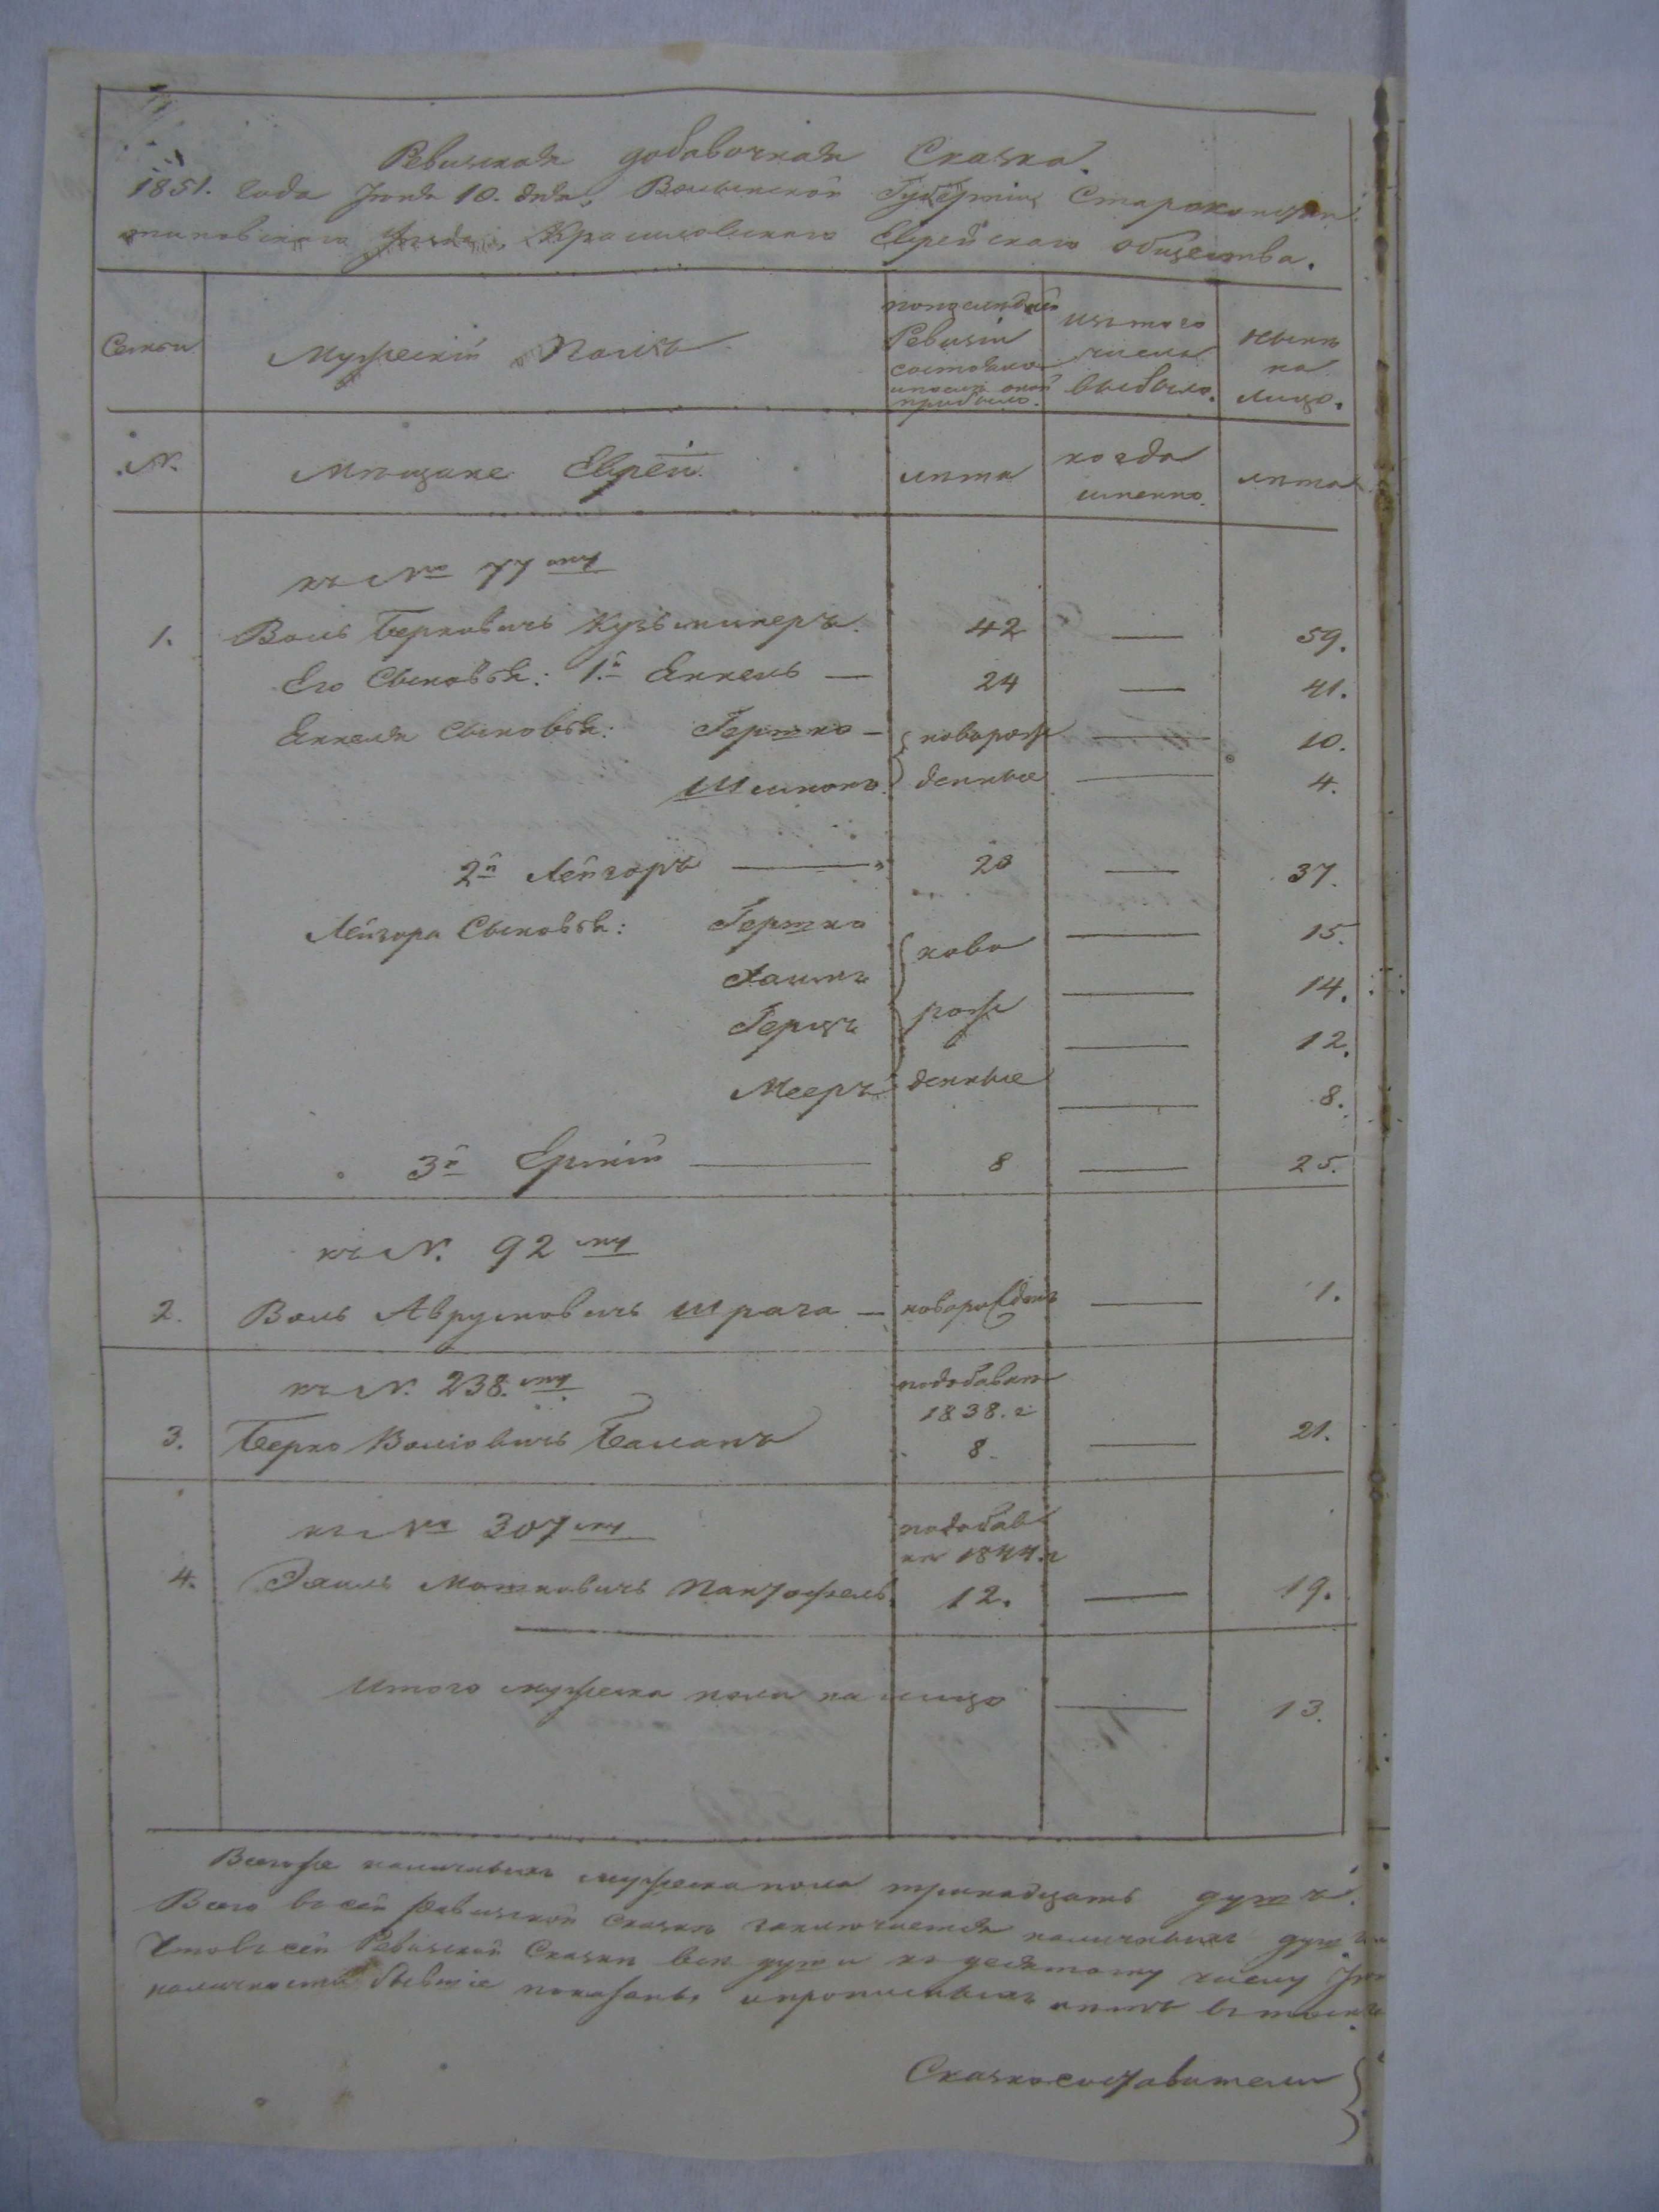 Ревизская добавочная Сказка.
1851. года Июня 10. дня, Волынской Губерніи Староконстан
тиновского уезда, Красиловского Еврейскаго общества.
Семьи
Мужескій Полъ
по последней Ревизіи состояло и после оной прибыло.
изъ того числа выбыло.
Ныне на лицо.
N.
Мещане Евреи.
лета
когда именно.
лета
къ No 77 му
1. Воль Берковичъ Кузьминеръ. 42 — 59.
Его Сыновья: 1й Янкель — 24 — 41.
Янкеля Сыновья: Гершко — новорож — 10.
Шлиома денные — 4.
2й Лейзоръ — 20 — 37.
Лейзора Сыновья: Гершко ново — 15.
Хаимъ — 14.
Герцъ рож — 12.
Мееръ денные — 8.
3й — 8 — 25.
къ N. 92 му
2. Воль Аврумовичъ Шрага — новорожден — 1.
къ N. 238. му
подобавоч
1838. г.
3. Берко Волiовичъ Баланъ 8. — 21.
къ No 307 му
подобав
къ 1844. г
4. Эхиль Мошковичъ Пантофель 12. — 19.
Итого мужеска пола на лицо — 13.
Всего же наличныхъ мужеска пола тринадцать душъ.
Всего въ сей Ревизской Сказке заключается наличныхъ душъ
Что въ сей Ревизской Сказке все души къ десятому числу Ию
наличности бывшіе показаны и прописныхъ нетъ въ томъ
Сказкосоставители